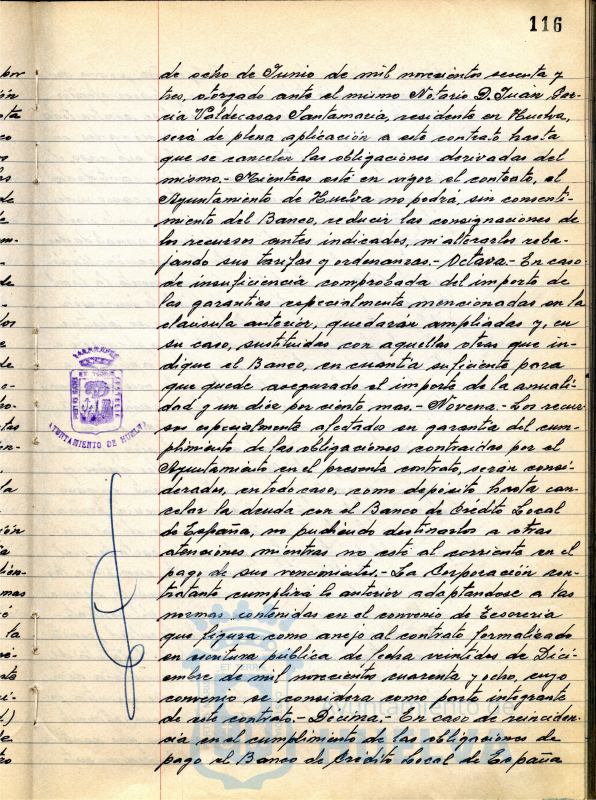 116
de ocho de Junio de mil novecientos sesenta y
tres, otorgado ante el mismo Notario D. Juán Gar-
cía Valdecasas Santamaría, residente en Huelva,
será de plena aplicación a este contrato hasta
que se cancelen las obligaciones derivadas del
mismo.- Mientras esté en vigor el contrato, el
Ayuntamiento de Huelva no podrá, sin consenti-
miento del Banco, reducir las consignaciones de
los recursos antes indicados, ni alterarlos reba-
jando sus tarifas y ordenanzas.- Octava.- En caso
de insuficiencia comprobada del importe de
las garantías especialmente mencionadas en la
cláusula anterior, quedarán ampliadas y, en
su caso, sustituidas con aquellas otras que in-
dique el Banco, en cuantía suficiente para
que quede asegurado el importe de la anuali-
dad y un diez por ciento mas.- Novena.- Los recur-
sos especialmente afectados en garantía del cum-
plimiento de las obligaciones contraidas por el
Ayuntamiento en el presente contrato, serán consi-
derados, en todo caso, como depósito hasta can-
celar la deuda con el Banco de Crédito Local
de España, no pudiendo destinarlos a otras
atenciones mientras no esté al corriente en el
pago de sus vencimientos.- La Corporación con-
tratante cumplirá lo anterior adaptandose a las
normas contenidas en el convenio de Tesorería
que figura como anejo al contrato formalizado
en escritura pública de fecha veintidos de Dici-
embre de mil novecientos cuarenta y ocho, cuyo
convenio se considera como parte integrante
de este contrato.- Decima.- En caso de reinciden-
cia en el cumplimiento de las obligaciones de
pago el Banco de Crédito Local de España
AYUNTAMIENTO DE HUELVA
Ayuntamiento de
HUELVA